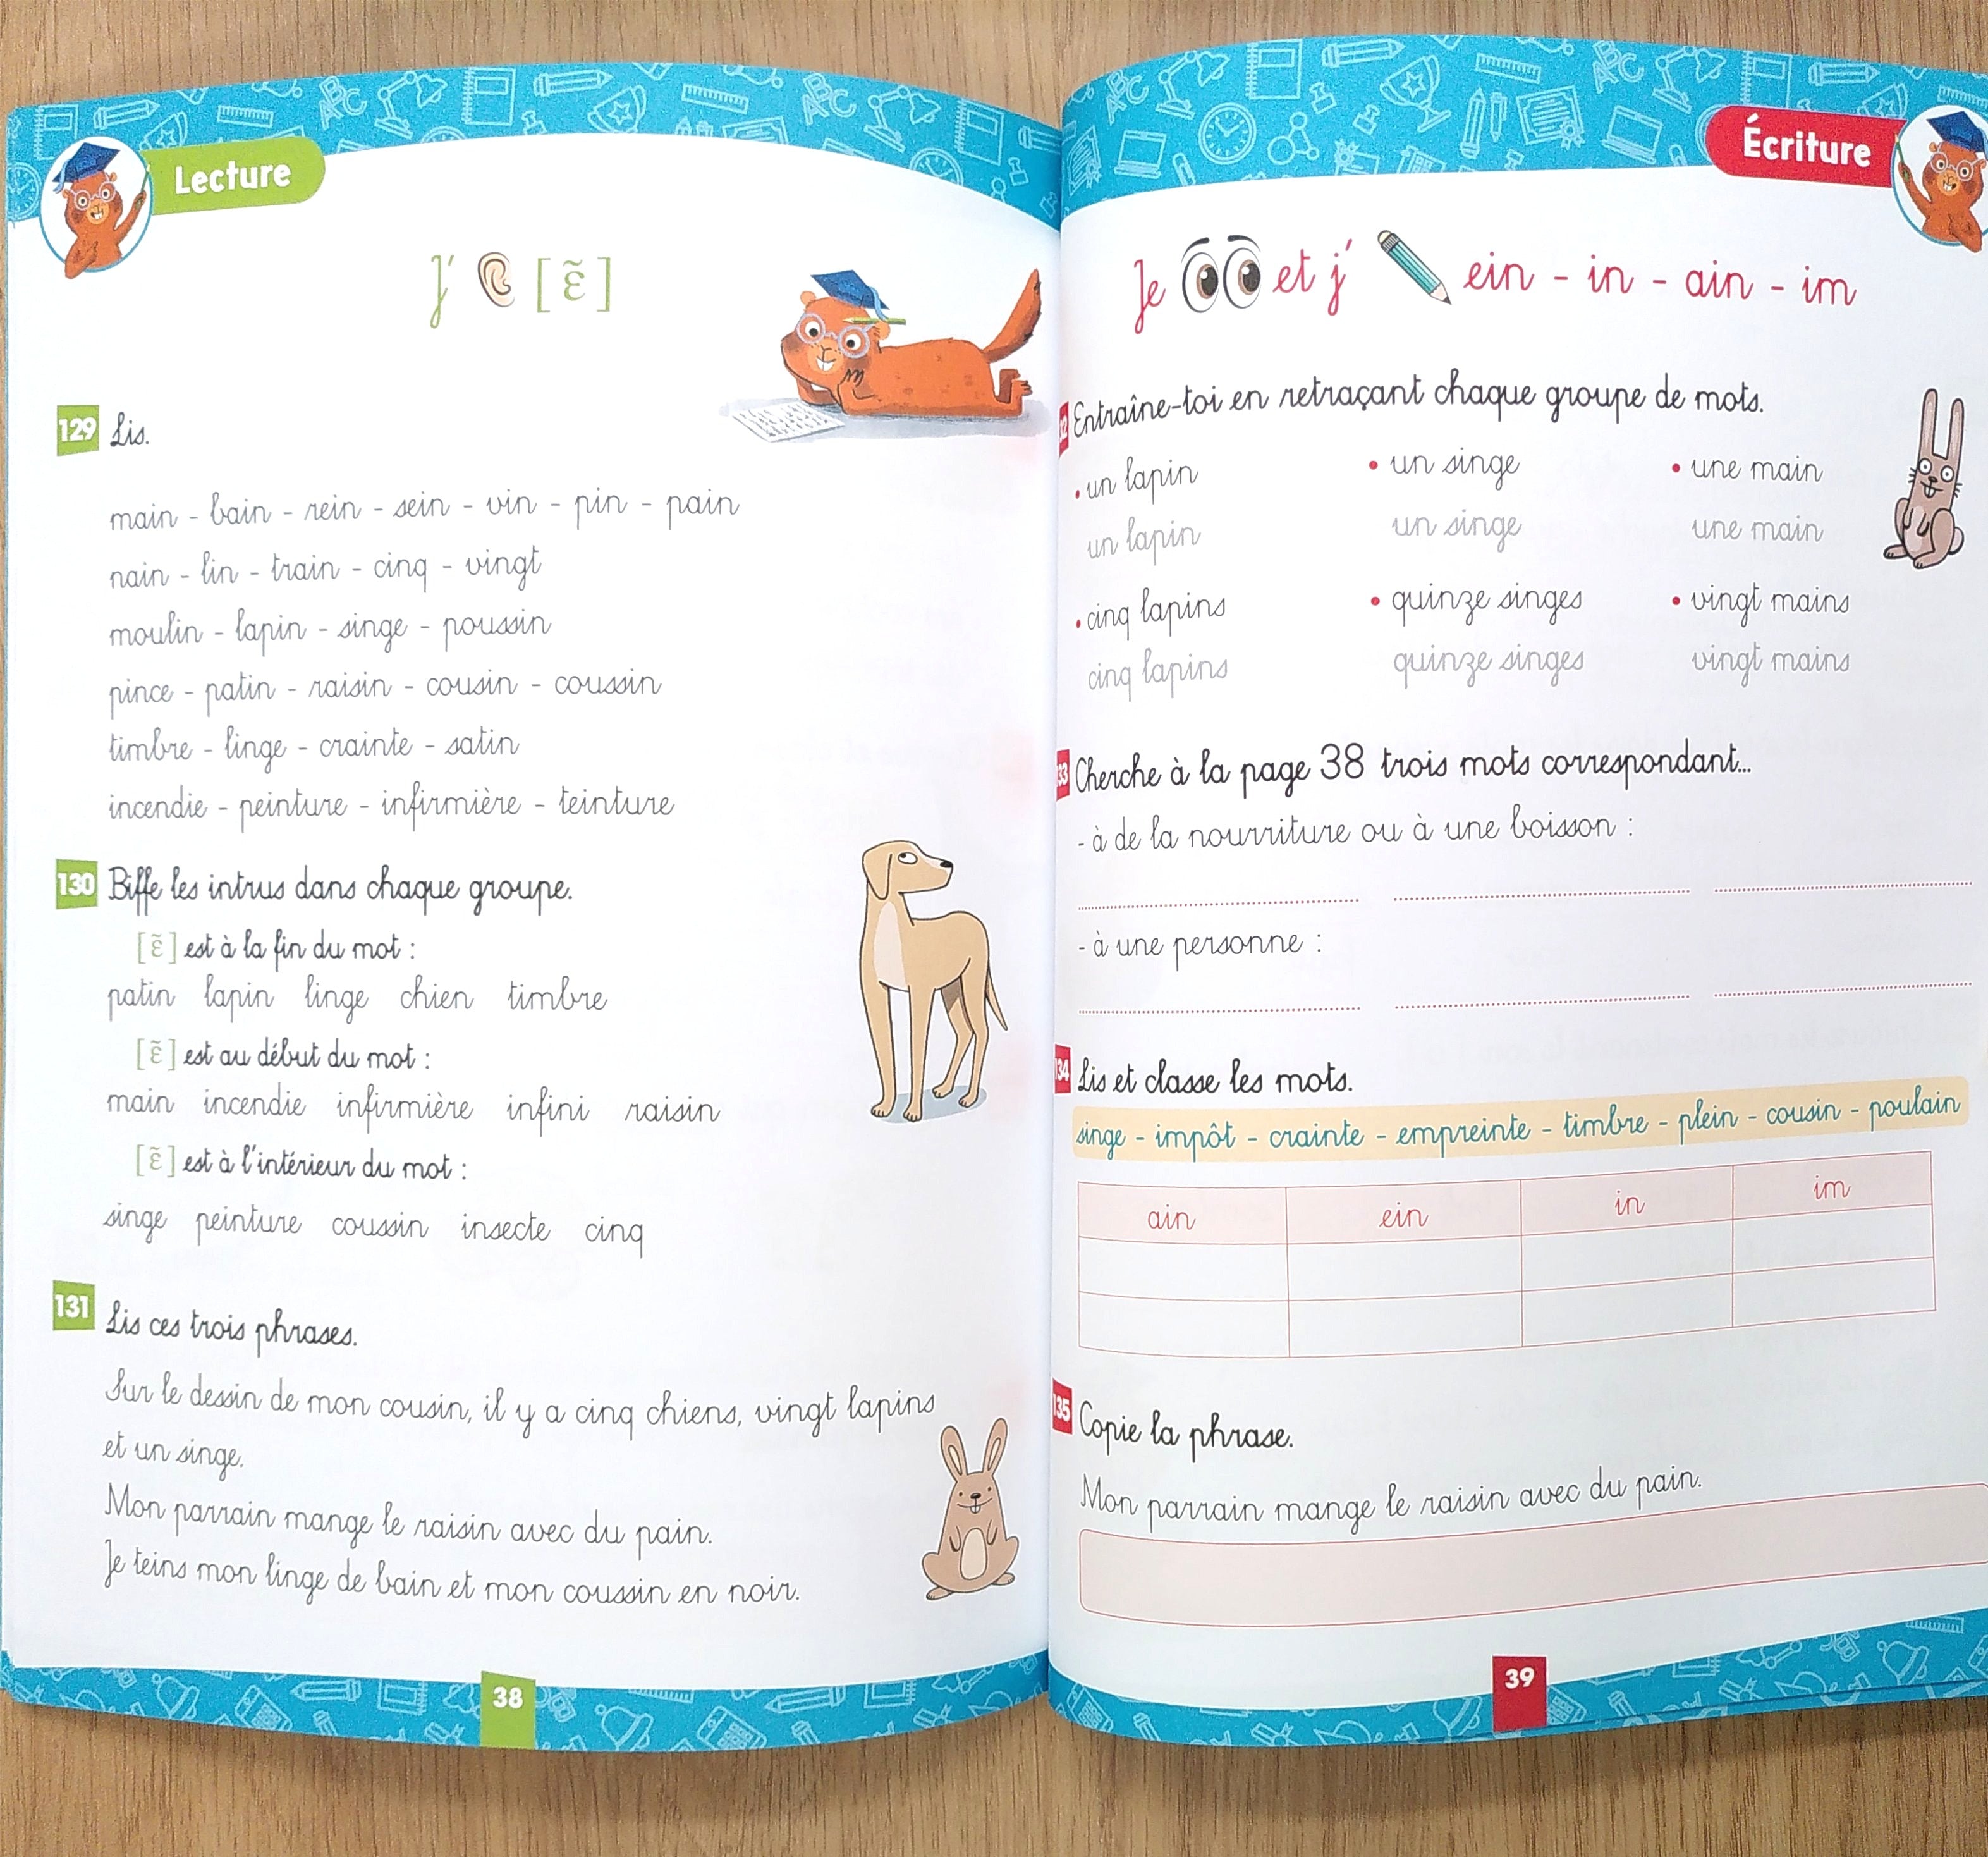 Lecture
J' [ɛ̃]
129 Lis.
main - bain - rein - sein - vin - pin - pain
nain - lin - train - cinq - vingt
moulin - lapin - singe - poussin
pince - patin - raisin - cousin - coussin
timbre - linge - crainte - satin
incendie - peinture - infirmière - teinture
130 Biffe les intrus dans chaque groupe.
[ɛ̃] est à la fin du mot :
patin lapin linge chien timbre
[ɛ̃] est au début du mot :
main incendie infirmière infini raisin
[ɛ̃] est à l'intérieur du mot :
singe peinture coussin insecte cinq
131 Lis ces trois phrases.
Sur le dessin de mon cousin, il y a cinq chiens, vingt lapins
et un singe.
Mon parrain mange le raisin avec du pain.
Je teins mon linge de bain et mon coussin en noir.
38
Écriture
Je et j' ein - in - ain - im
2 Entraîne-toi en retraçant chaque groupe de mots.
• un lapin • un singe • une main
un lapin un singe une main
• cinq lapins • quinze singes • vingt mains
cinq lapins quinze singes vingt mains
33 Cherche à la page 38 trois mots correspondant...
- à de la nourriture ou à une boisson :
- à une personne :
134 Lis et classe les mots.
singe - impôt - crainte - empreinte - timbre - plein - cousin - poulain
ain ein in im
135 Copie la phrase.
Mon parrain mange le raisin avec du pain.
39